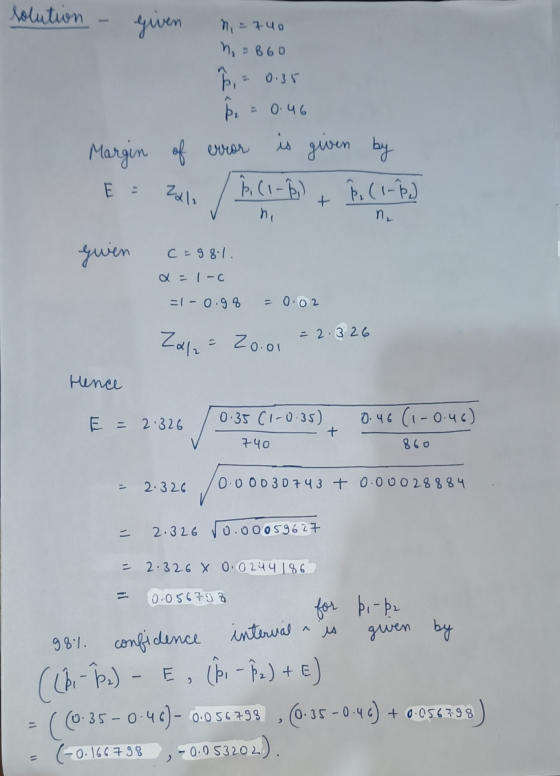 Solution - given n₁ = 740
n₂ = 860
p̂₁ = 0.35
p̂₂ = 0.46
Margin of error is given by
E = Zα/₂ √( p̂₁(1-p̂₁)/n₁ + p̂₂(1-p̂₂)/n₂ )
given c = 98%.
α = 1-c
= 1-0.98 = 0.02
Zα/₂ = Z0.01 = 2.326
Hence
E = 2.326 √( 0.35 (1-0.35)/740 + 0.46 (1-0.46)/860 )
= 2.326 √( 0.00030743 + 0.00028884 )
= 2.326 √0.00059627
= 2.326 x 0.0244186
= 0.056798
for p₁-p₂
98%. confidence interval ^ is given by
((p̂₁-p̂₂) - E, (p̂₁-p̂₂) + E)
= ((0.35-0.46)-0.056798, (0.35-0.46)+0.056798)
= (-0.166798, -0.053202).